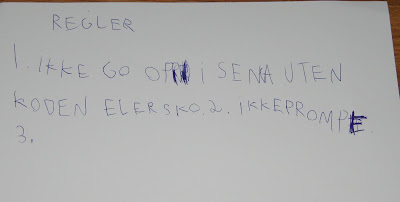 REGLER
1. IKKE GO OPP I SENA UTEN
KODEN ELERSKO. 2. IKKEPROMPE.
3.